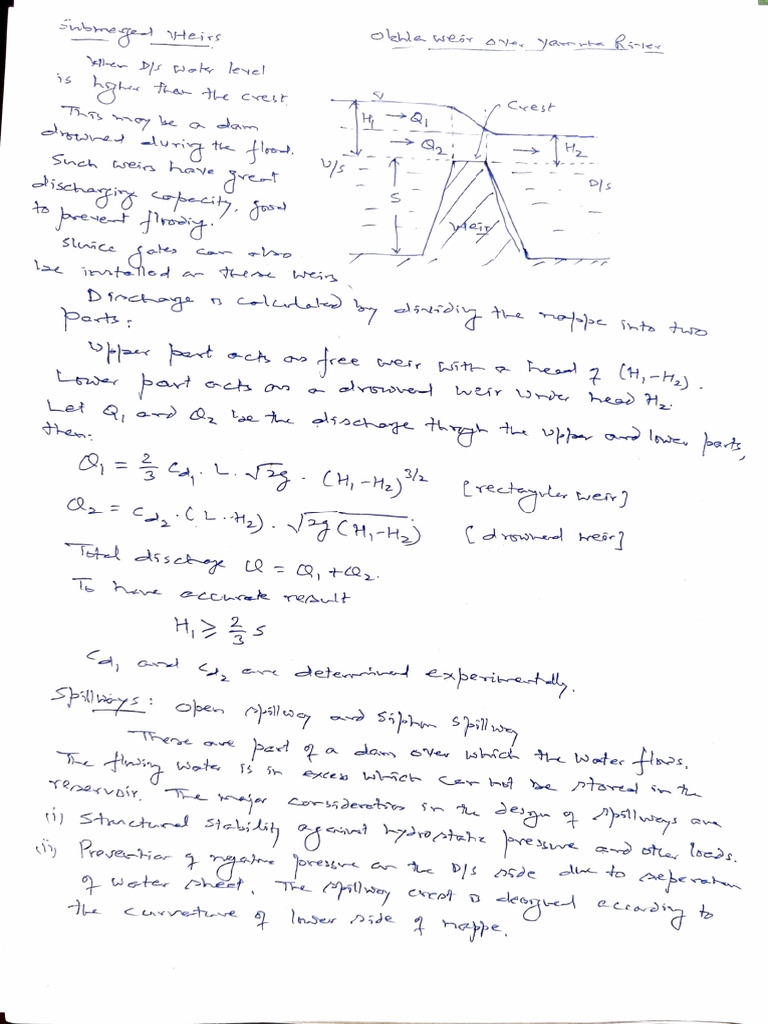 Submerged Weirs
Okhla weir over Yamuna River
When D/S water level
is higher than the crest.
This may be a dam
drowned during the flood.
Such weirs have great
discharging capacity, good
to prevent flooding.
Sluice gates can also
be installed on these weirs.
H₁
→ Q₁
→ Q₂
Crest
H₂
U/S
D/S
S
Weir
Discharge is calculated by dividing the nappe into two
parts:
Upper part acts as free weir with a head of (H₁-H₂).
Lower part acts as a drowned weir under head H₂.
Let Q₁ and Q₂ be the discharge through the upper and lower parts,
then:
Q₁ = 2/3 Cd₁. L. √2g . (H₁-H₂)^3/2 [rectangular weir]
Q₂ = Cd₂. (L. H₂). √2g(H₁-H₂) [drowned weir]
Total discharge Q = Q₁+Q₂.
To have accurate result
H₁ ⩾ 2/3 S
Cd₁ and Cd₂ are determined experimentally.
Spillways: Open spillway and Siphon spillway
These are part of a dam over which the water flows.
The flowing water is in excess which can not be stored in the
reservoir. The major consideration in the design of spillways are
(i) Structural stability against hydrostatic pressure and other loads.
(ii) Prevention of negative pressure on the D/S side due to seperation
of water sheet. The spillway crest is designed according to
the curvature of lower side of nappe.